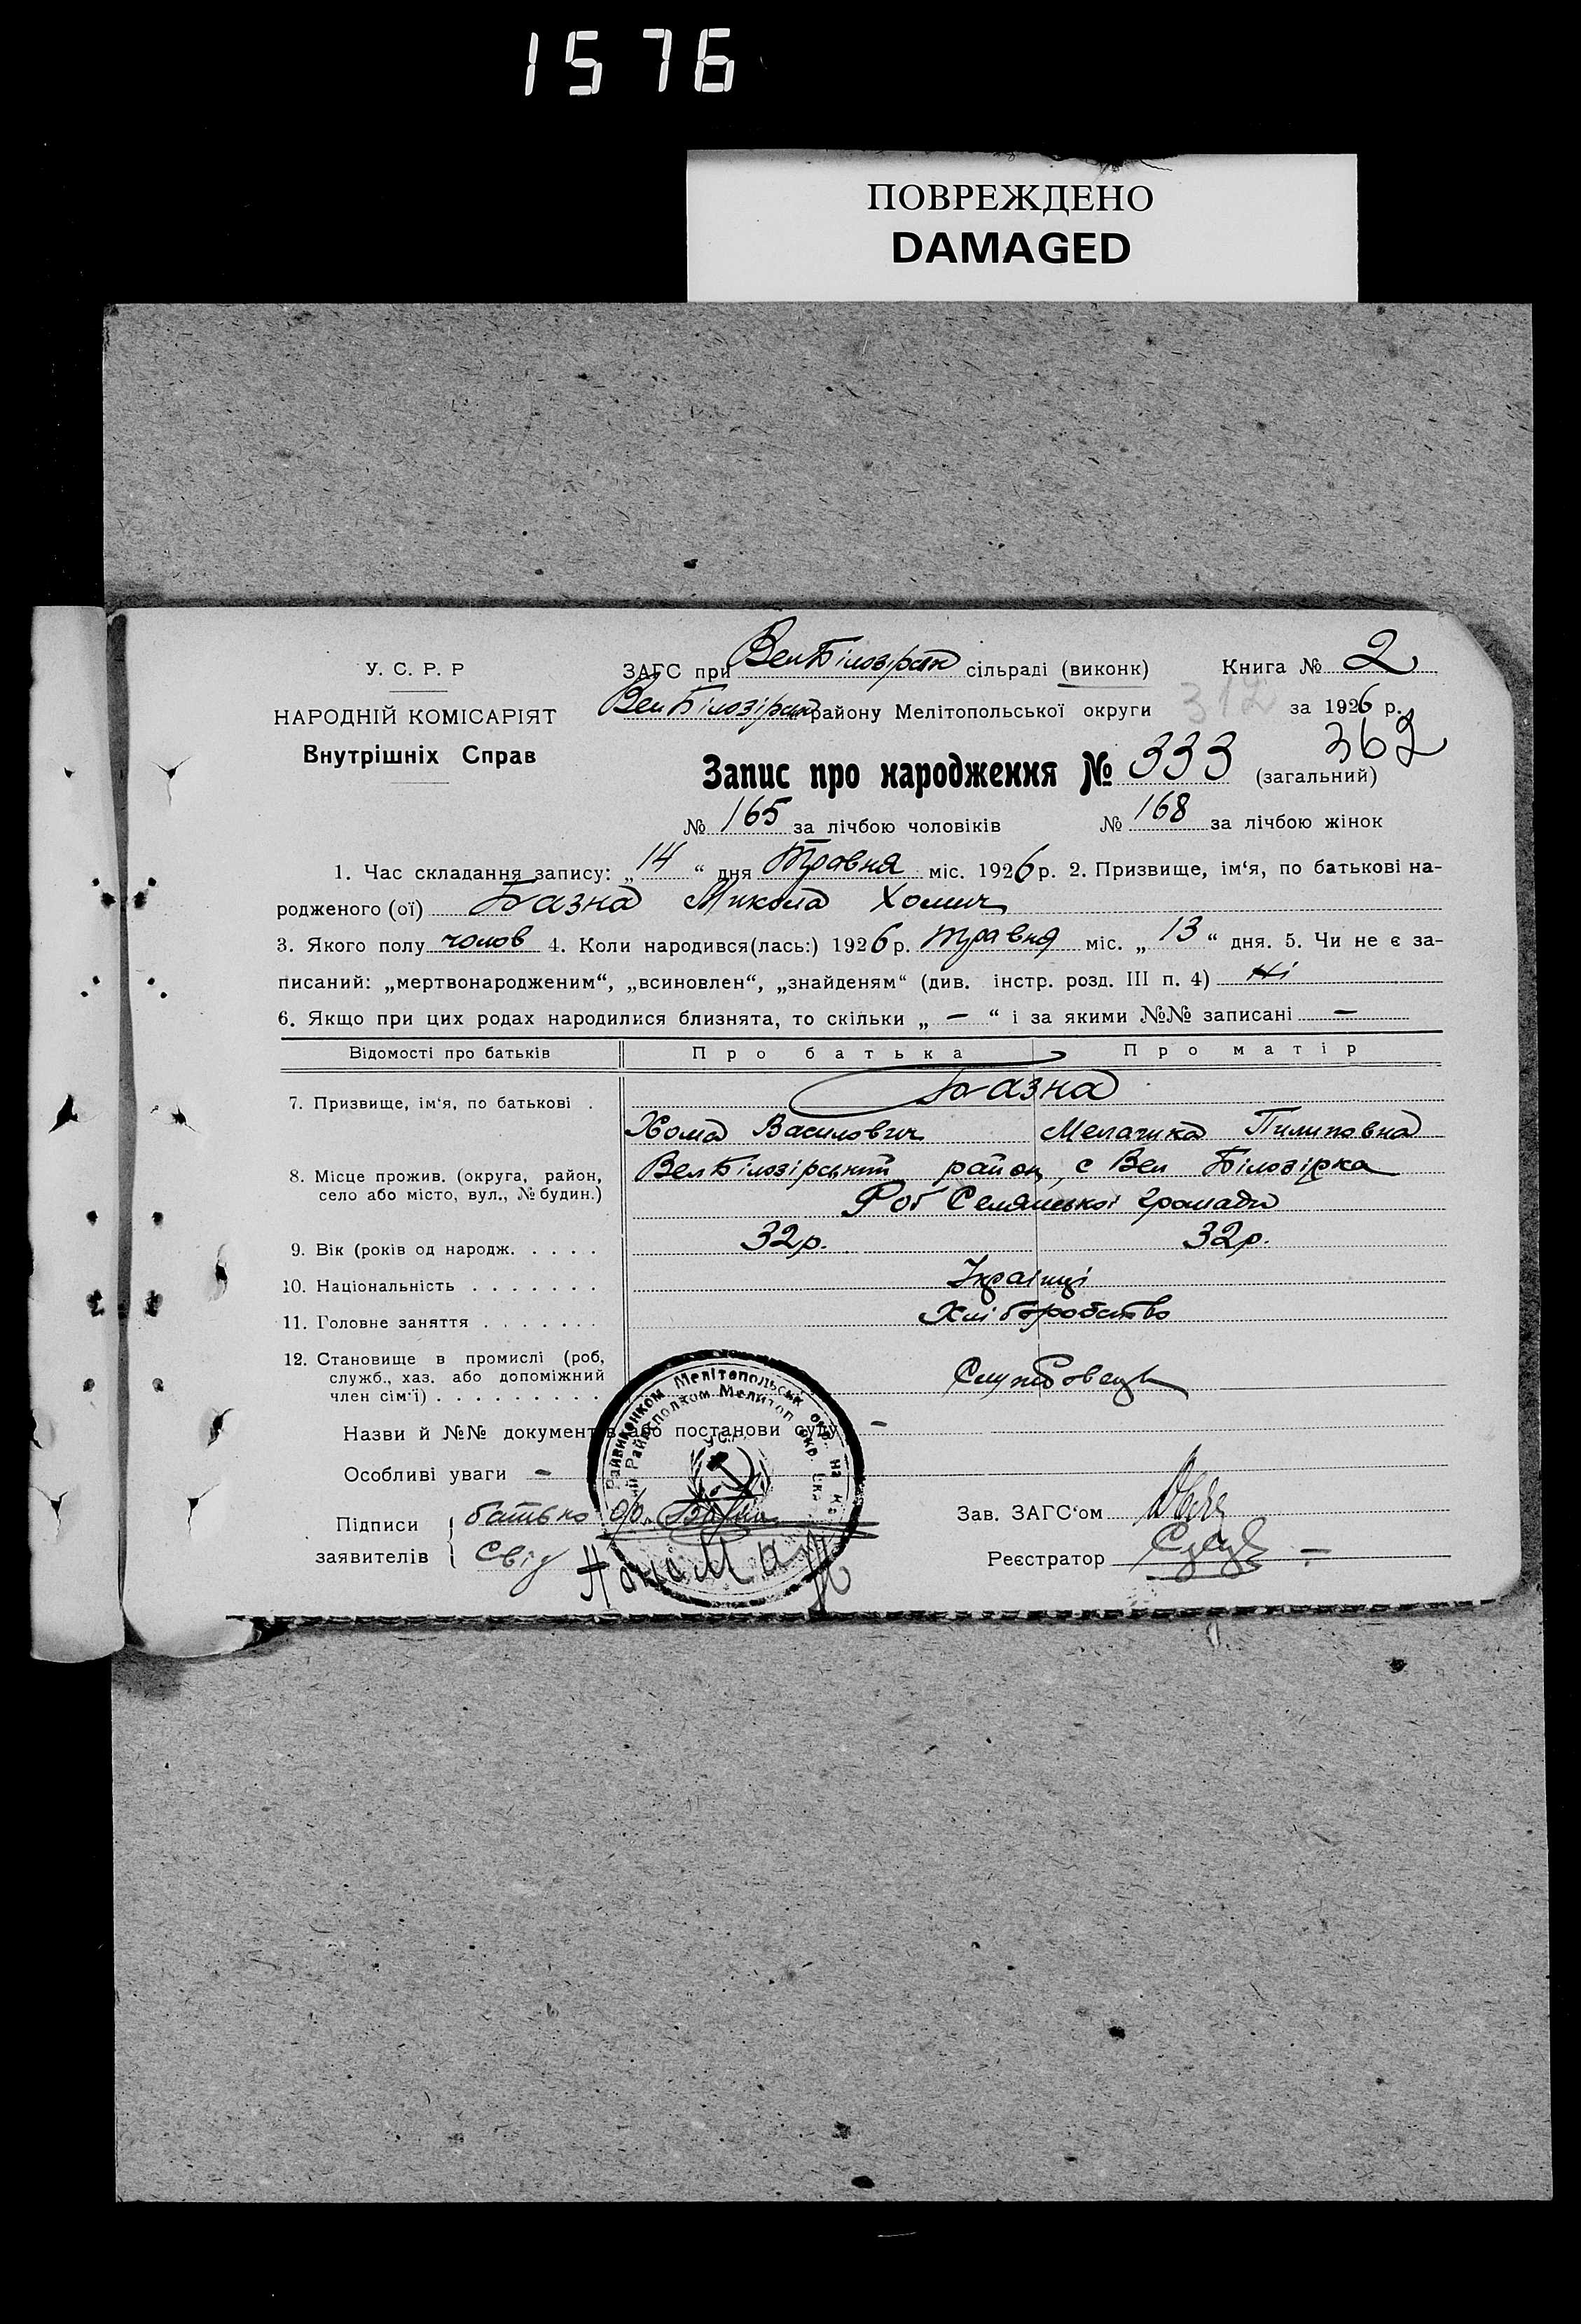 1576
ПОВРЕЖДЕНО
DAMAGED
У. С. Р. Р
НАРОДНІЙ КОМІСАРІЯТ
Внутрішніх Справ
ЗАГС при ВелБілозірськ сільраді (виконк) Книга № 2
ВелБілозірськ району Мелітопольської округи 312 за 1926 р.
362
Запис про народження № 333 (загальний)
№ 165 за лічбою чоловіків № 168 за лічбою жінок
1. Час складання запису: „14“ дня Травня міс. 1926 р. 2. Призвище, ім‘я, по батькові на-
родженого (ої) Базна Микола Хомич
3. Якого полу чолов 4. Коли народився(лась:) 1926 р. Травня міс. „13“ дня. 5. Чи не є за-
писаний: „мертвонародженим“, „всиновлен“, „знайденям“ (див. інстр. розд. III п. 4) Ні
6. Якщо при цих родах народилися близнята, то скільки „ — “ і за якими №№ записані —
Відомості про батьків Про батька Про матір
7. Призвище, ім‘я, по батькові . Базна
Хома Василович Мелашка Пилиповна
8. Місце прожив. (округа, район, село або місто, вул., № будин.) ВелБілозірський район, с Вел Білозірка
Роб Селянської громади
9. Вік (років од народж. . . . . 32р. 32р.
10. Національність . . . . . . . Українці
11. Головне заняття . . . . . . . Хліборобство
12. Становище в промислі (роб, служб., хаз. або допоміжний член сім‘ї) . . . . . . . . .
Назви й №№ документів або постанови суду —
Особливі уваги —
Підписи заявителів батько Базна
Свід
Зав. ЗАГС‘ом
Реєстратор
Райвиконком Мелітопольськ окр. на
Райисполком Мелитоп окр.